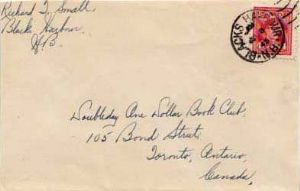 Richard T. Small
Blacks Harbour
N.B.
BLACKS HARBOUR
Doubleday One Dollar Book Club,
105 Bond Street
Toronto, Ontario,
Canada,